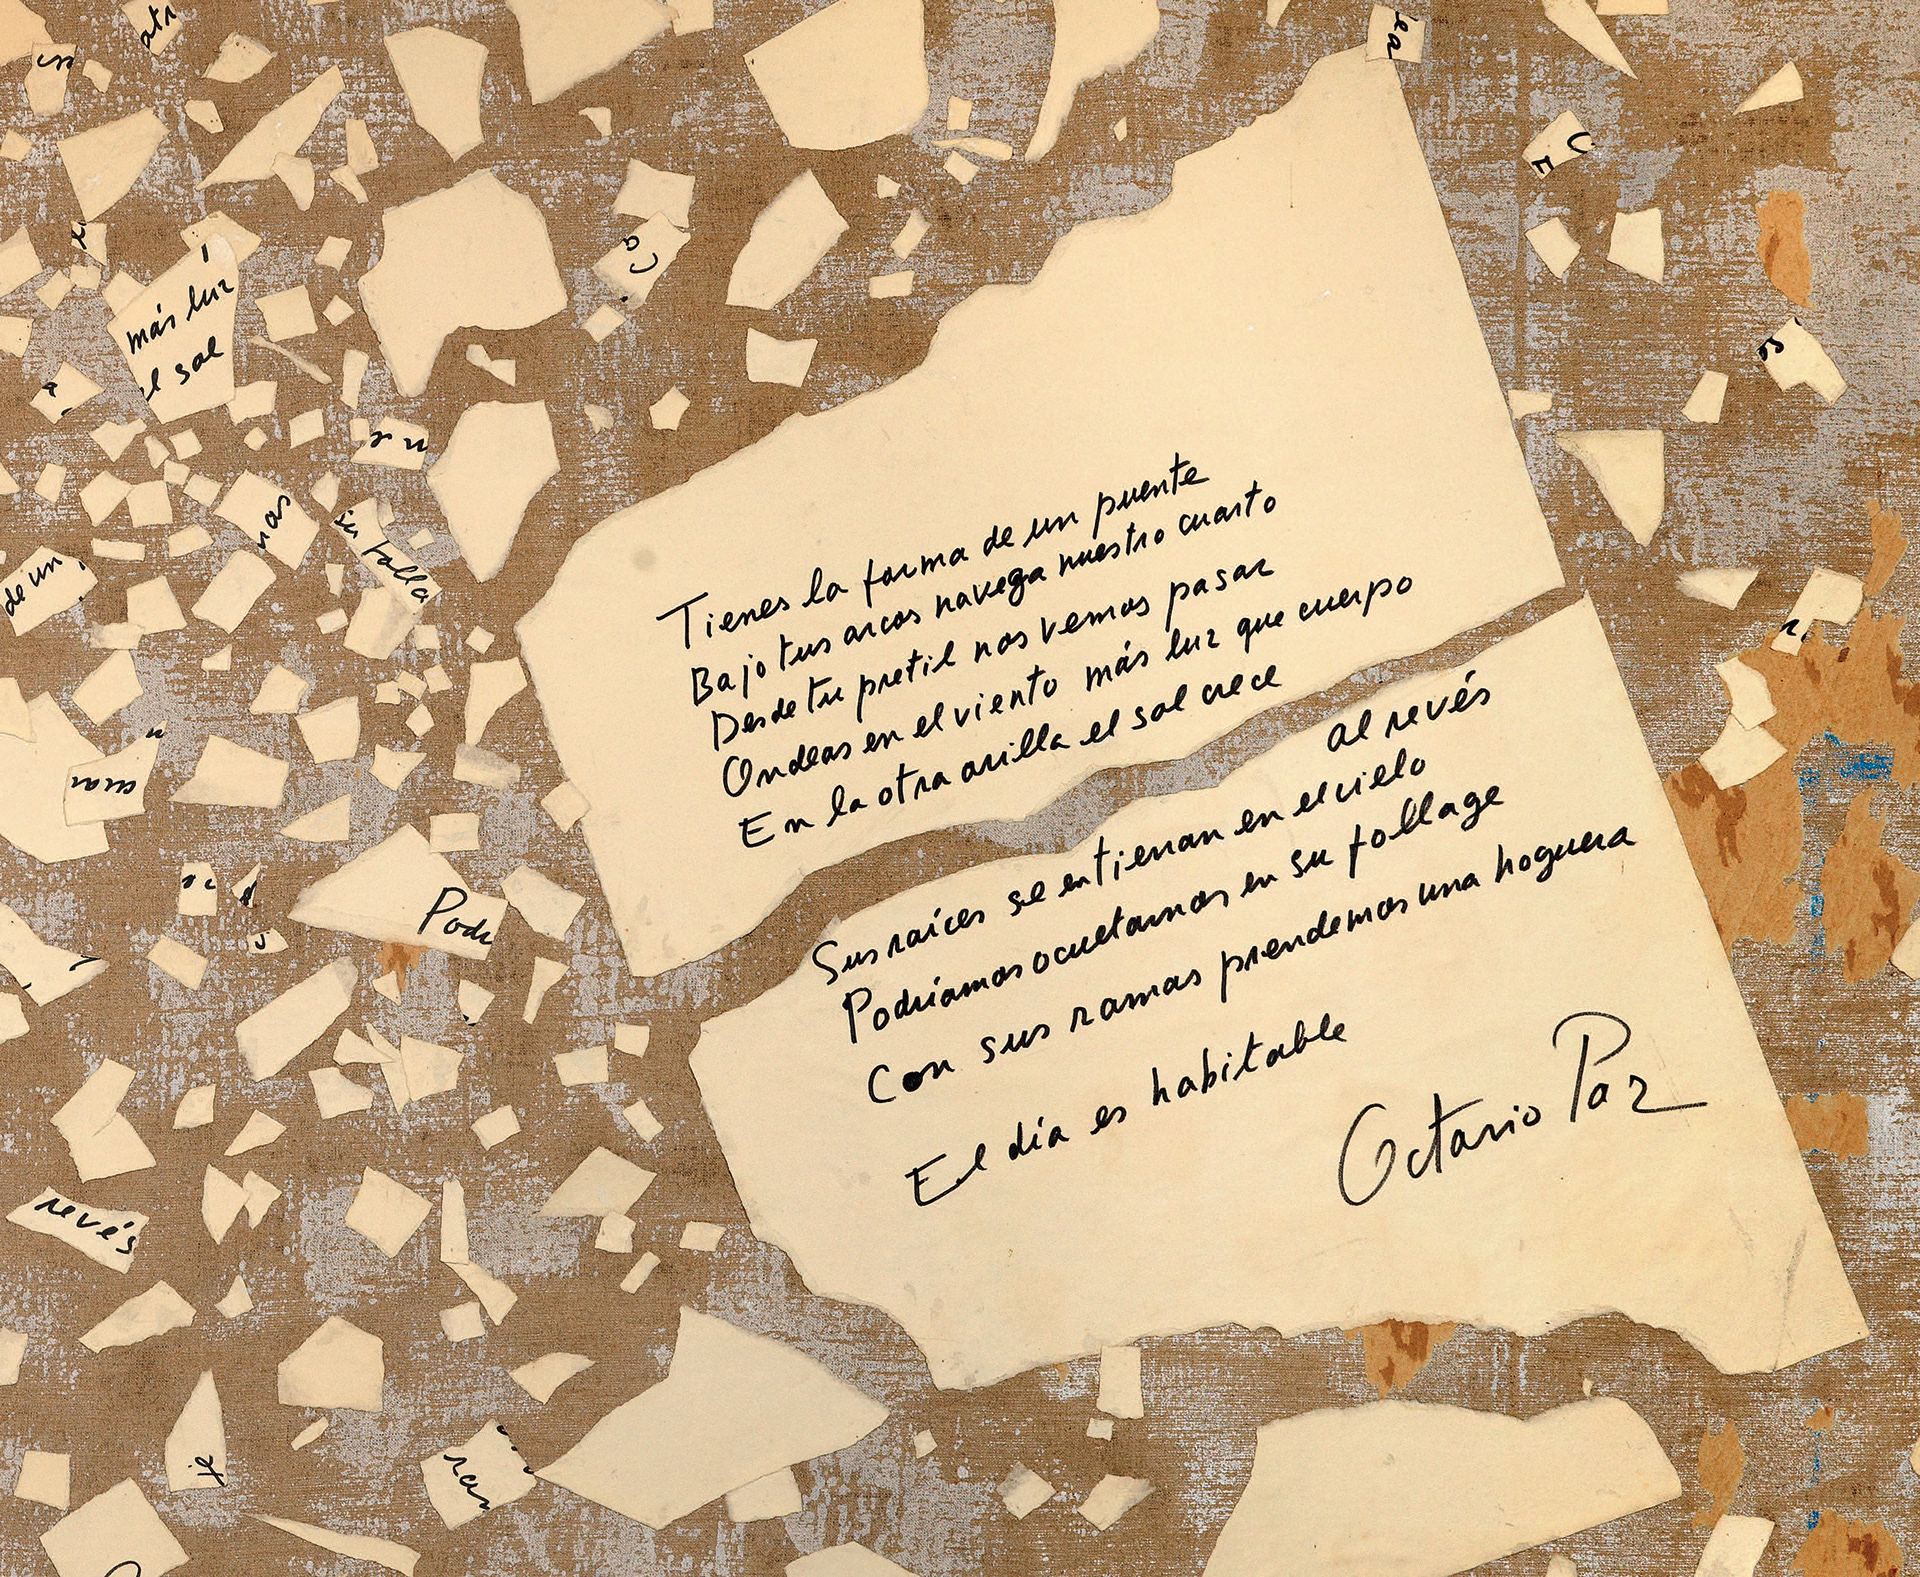 Tienes la forma de un puente
Bajo tus arcos navega nuestro cuarto
Desde tu pretil nos vemos pasar
Ondeas en el viento más luz que cuerpo
En la otra orilla el sol crece
al revés
Sus raíces se entierran en el cielo
Podríamos ocultarnos en su follage
Con sus ramas prendemos una hoguera
El día es habitable
Octavio Paz
más luz
el sol
nos
su folla
de un
Podr
revés
ras